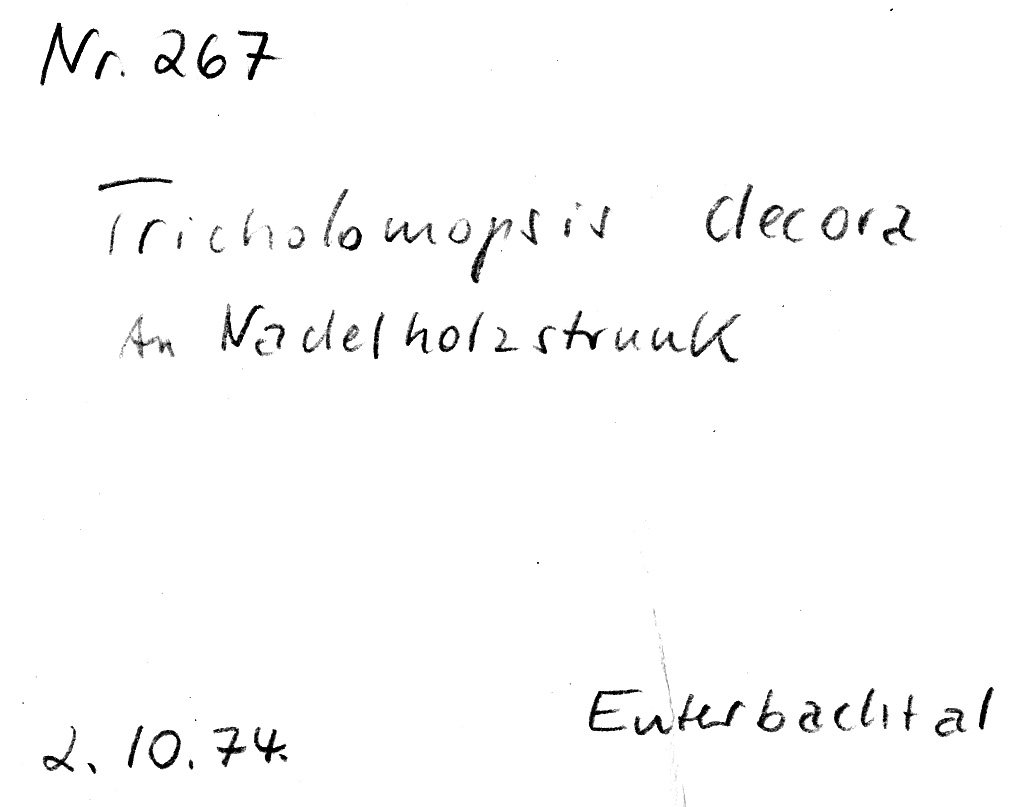 Nr. 267
Tricholomopsis decora
An Nadelholzstrunk
Enterbachtal
2. 10. 74.